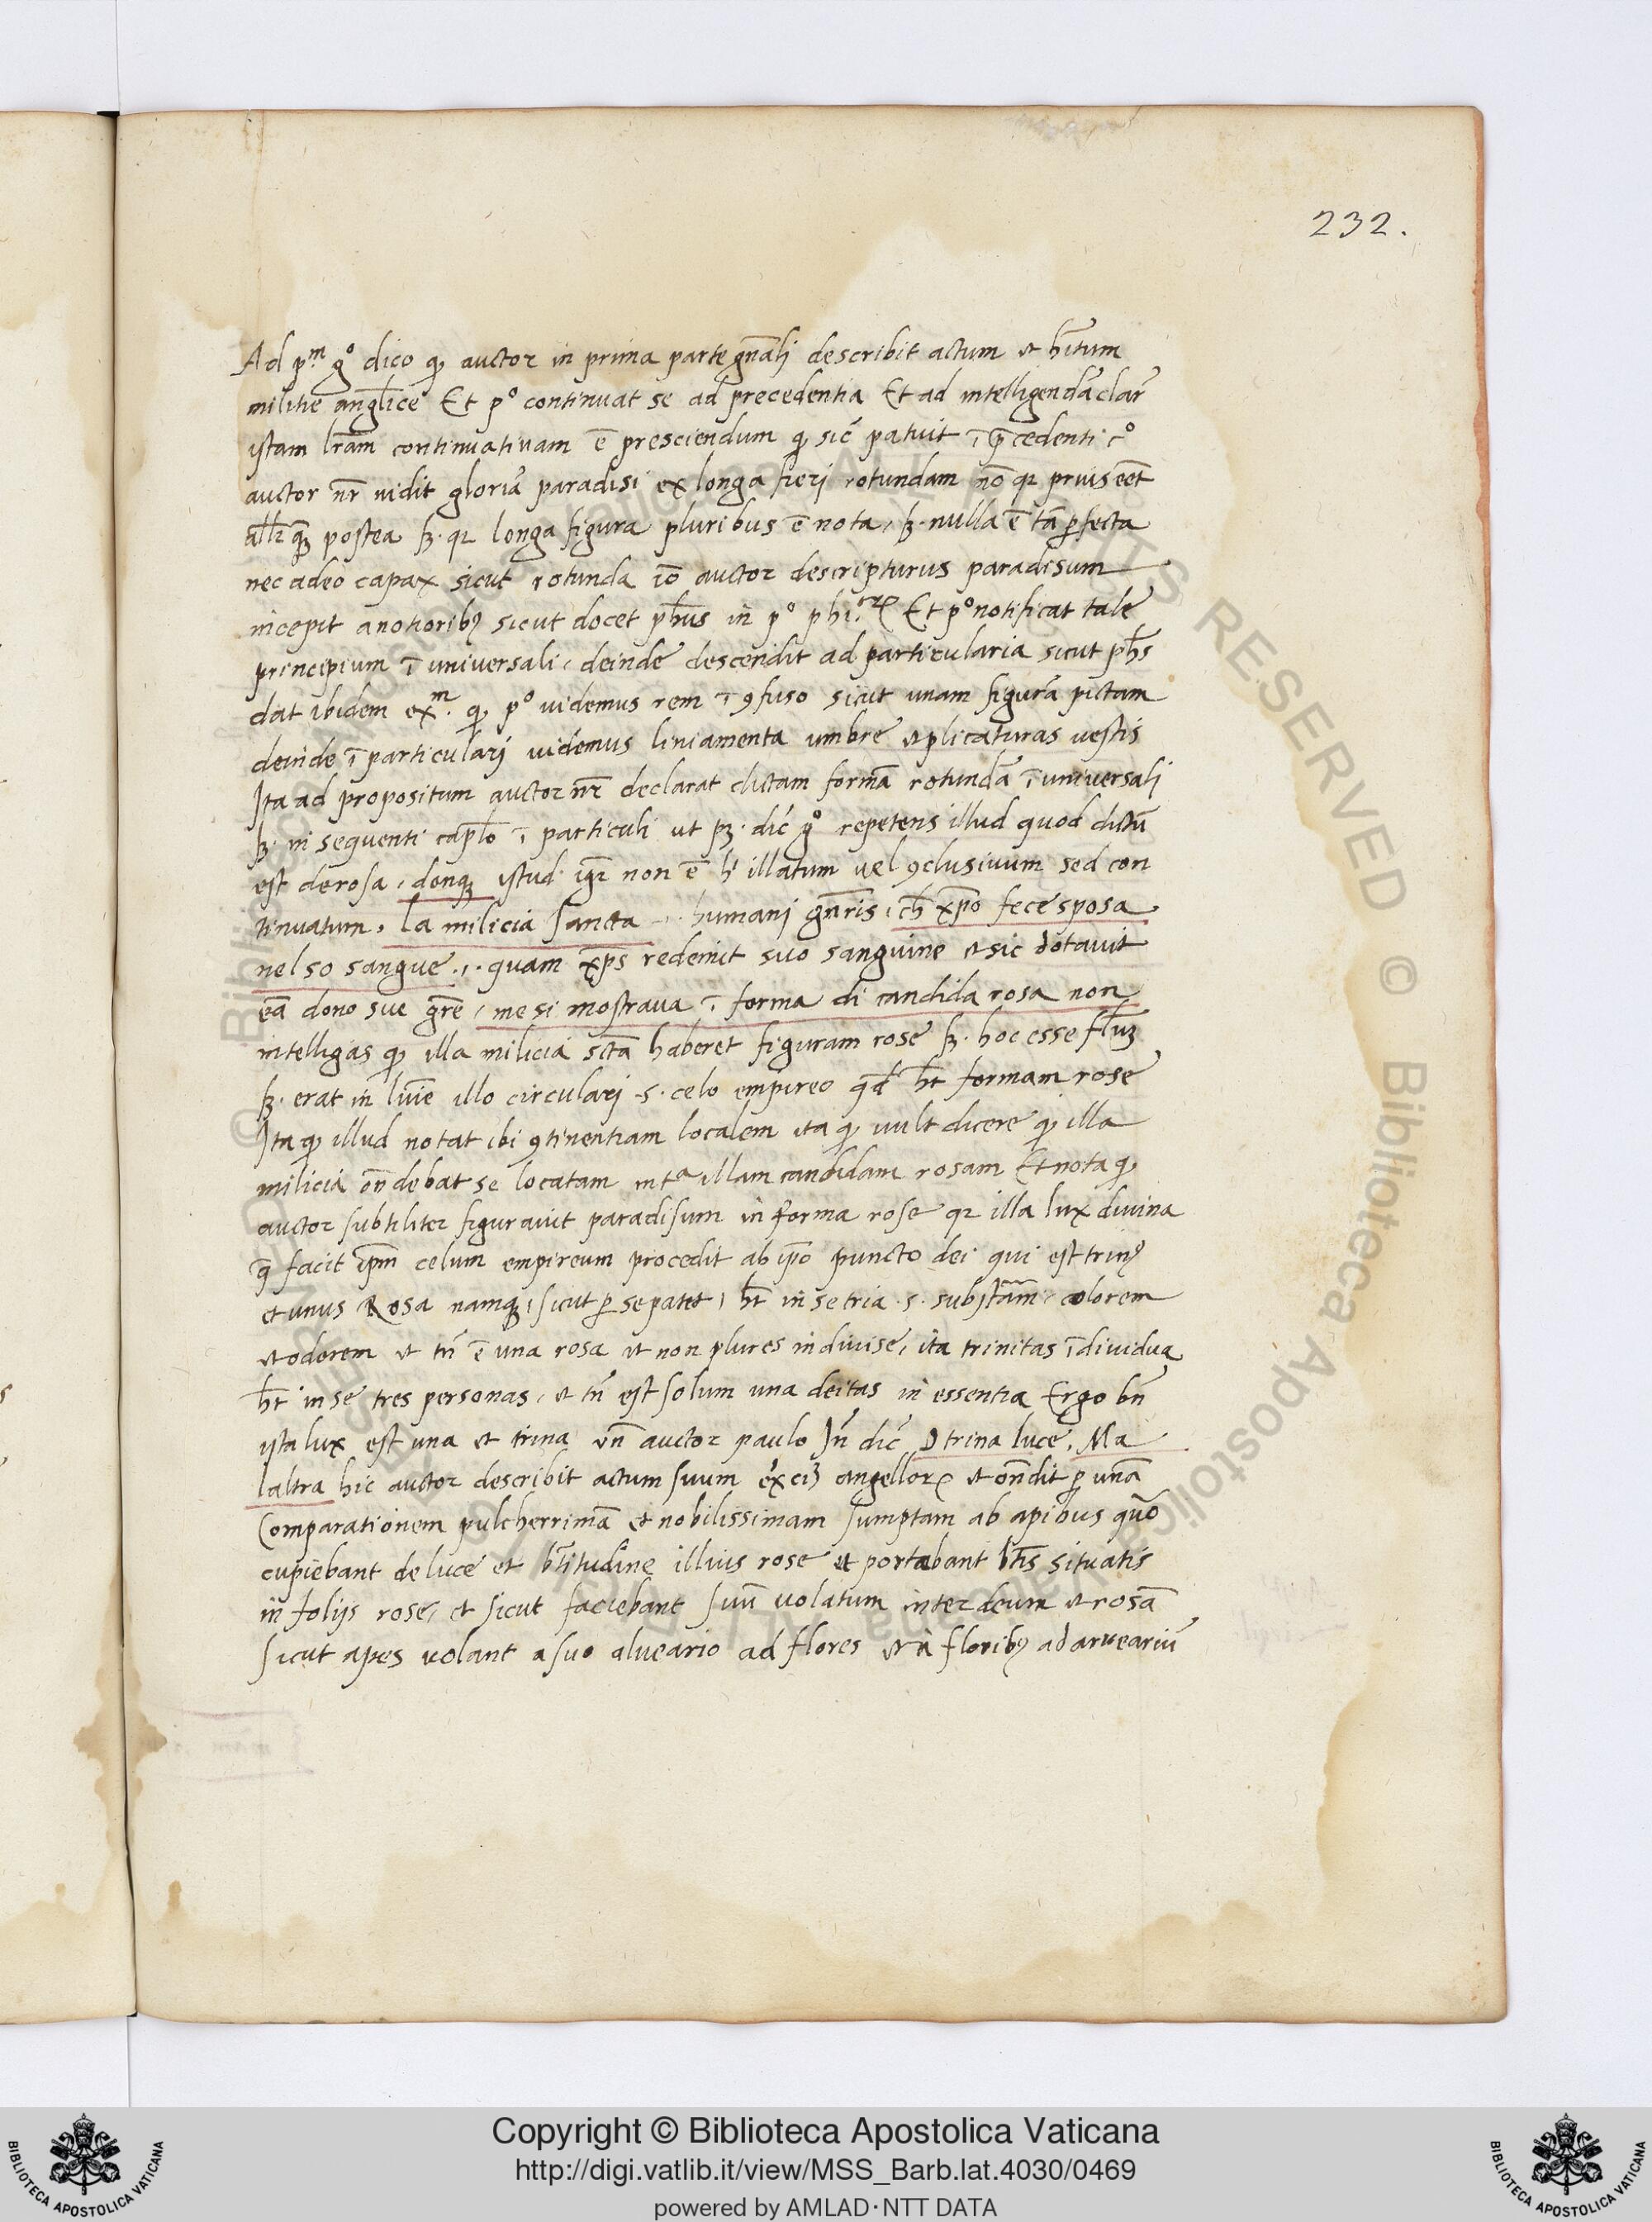 232.
Ad p.m gº dico ꝙ auctor in prima parte gn̄alj describit actum et h̄itum
militie angl̄ice Et pº continuat se ad precedentia Et ad intelligendā clar̄
istam lr̄am continuativam ē presciendum ꝙ sic̄ patuit ī p̄cedenti cº
auctor nr̄ vidit gloriā paradisi ex longa fierj rotundam nō qz prius eēt
postea sꝫ. qz longa figura pluribus ē nota, sꝫ. nulla ē tā ꝑfecta
nec adeo capax sicut rotunda iō auctor descripturus paradisum
incepit a notioribꝰ sicut docet ph̄us in pº phi.coꝝ Et pº notificat tale
principium ī universali, deinde descendit ad particularia sicut ph̄s
dat ibidem exm. ꝙ pº videmus rem ī ꝯfuso sicut unam figurā pictam
deinde ī particularj videmus liniamenta umbre et plicaturas vestis
Ita ad propositum auctor nr̄ declarat dictam formā rotundā ī universali
sꝫ. in sequenti cap̄lo ī particuli ut pꝫ. dic̄ gº repetens illud quod dictū
est de rosa, donqꝫ istud igr̄ non ē h' illatum vel ꝯclusivum sed con
tinuatum. La milicia sancta .i. humanj gn̄ris, ch̄ xp̄o fece sposa
nel so sangue .i. quam xp̄s redemit suo sanguine et sic dotavit
eā dono sue gr̄e, me si mostrava ī forma di candida rosa non
intelligas ꝙ illa milicia sc̄ta haberet figuram rose sꝫ. hoc esse
sꝫ. erat in lūie illo circularj .s. celo empireo qd̄ h̄t formam rose
Ita ꝙ illud notat ibi ꝯtinentiam localem ita ꝙ vult dicere ꝙ illa
milicia on̄debat se locatam int.a illam candidam rosam Et nota ꝙ
auctor subtiliter figuravit paradisum in forma rose qz illa lux divina
q̄ facit ip̄m celum empireum procedit ab ip̄o puncto dei qui est trinꝰ
et unus Rosa namqꝫ, sicut ꝑ se patet, h̄t in se tria .s. subst̄am, colorem
et odorem et tn̄ ē una rosa et non plures indivise, ita trinitas īdividua
h̄t in se tres personas, et tn̄ est solum una deitas in essentia Ergo bn̄
ista lux est una et trina vn̄ auctor paulo In̄ dic̄ O trina luce. Ma
laltra hic auctor describit actum suum angelloꝝ et on̄dit ꝑ unā
Comparationem pulcherrimā et nobilissimam sumptam ab apibus quō
cupiebant de luce et b̄titudine illius rose et portabant b̄tis situatis
in folijs rose, et sicut faciebant suū volatum inter deum et rosā
sicut apes volant a suo alveario ad flores et à floribꝰ ad arvearīu
Copyright © Biblioteca Apostolica Vaticana
http://digi.vatlib.it/view/MSS_Barb.lat.4030/0469
powered by AMLAD·NTT DATA
BIBLIOTECA APOSTOLICA VATICANA
BIBLIOTECA APOSTOLICA VATICANA